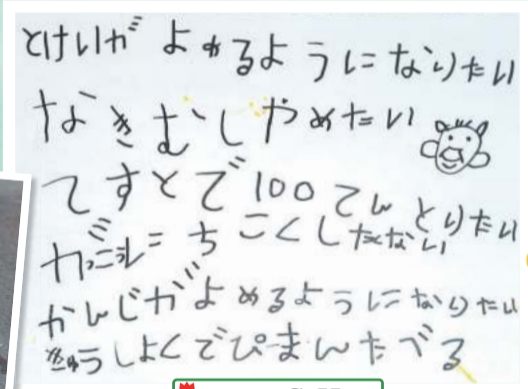 とけいが よめるようになりたい
なきむしやめたい
てすとで100てんとりたい
がっこうにちこくしたくない
かんじがよめるようになりたい
きゅうしよくでぴまんたべる